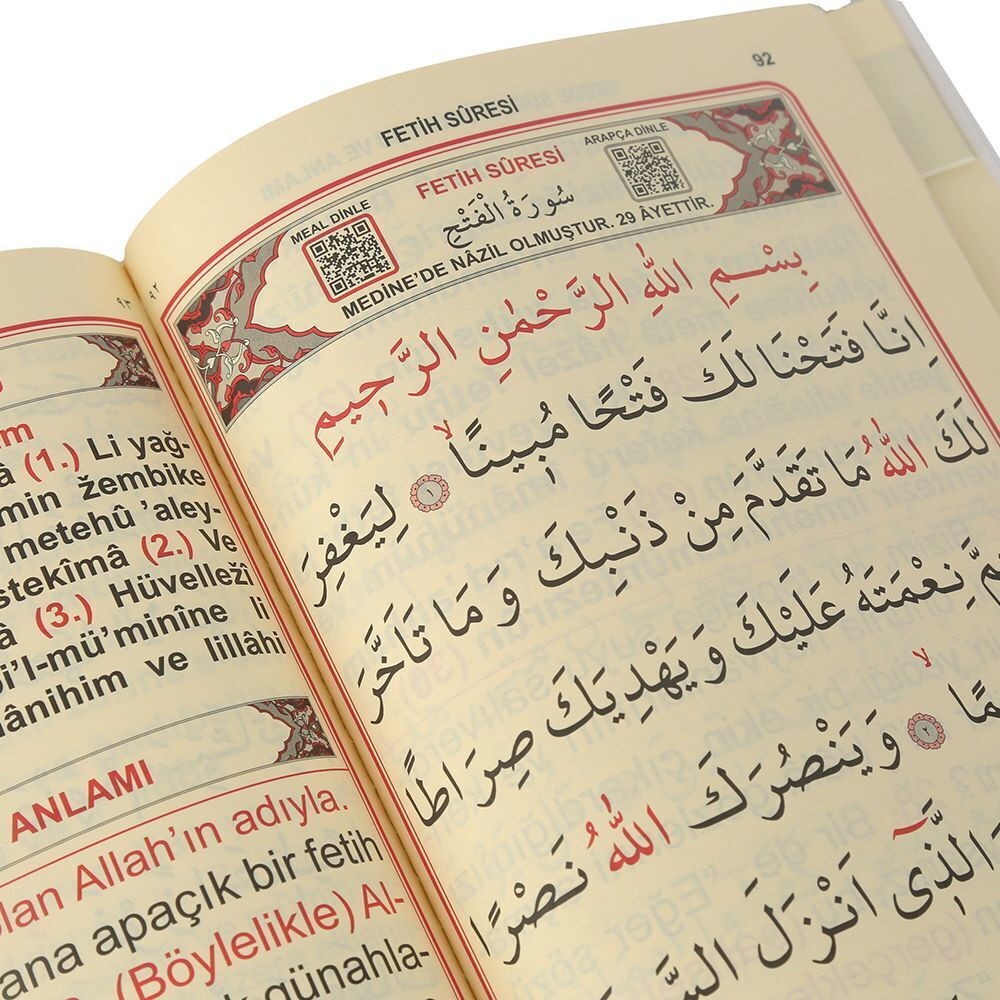 92
FETİH SÛRESİ
ARAPÇA DİNLE
FETİH SÛRESİ
MEAL DİNLE
سُورَةُ الْفَتْحِ
MEDİNE'DE NÂZİL OLMUŞTUR. 29 ÂYETTİR.
بِسْمِ اللّٰهِ الرَّحْمٰنِ الرَّحٖيمِ
اِنَّا فَتَحْنَا لَكَ فَتْحًا مُبٖينًاۙ ﴿١﴾ لِيَغْفِرَ
لَكَ اللّٰهُ مَا تَقَدَّمَ مِنْ ذَنْبِكَ وَمَا تَاَخَّرَ
نِعْمَتَهُ عَلَيْكَ وَيَهْدِيَكَ صِرَاطًا
ۙ ﴿٢﴾ وَيَنْصُرَكَ اللّٰهُ نَصْرًا
الَّذٖٓى اَنْزَلَ
٩٢
٩٣
(1.) Li yağ-
min žembike
metehû 'aley-
stekîmâ (2.) Ve
(3.) Hüvelležî
bi'l-mü'minîne li
îmânihim ve lillâhi
ANLAMI
olan Allah'ın adıyla.
sana apaçık bir fetih
(Böylelikle) Al-
günahla-